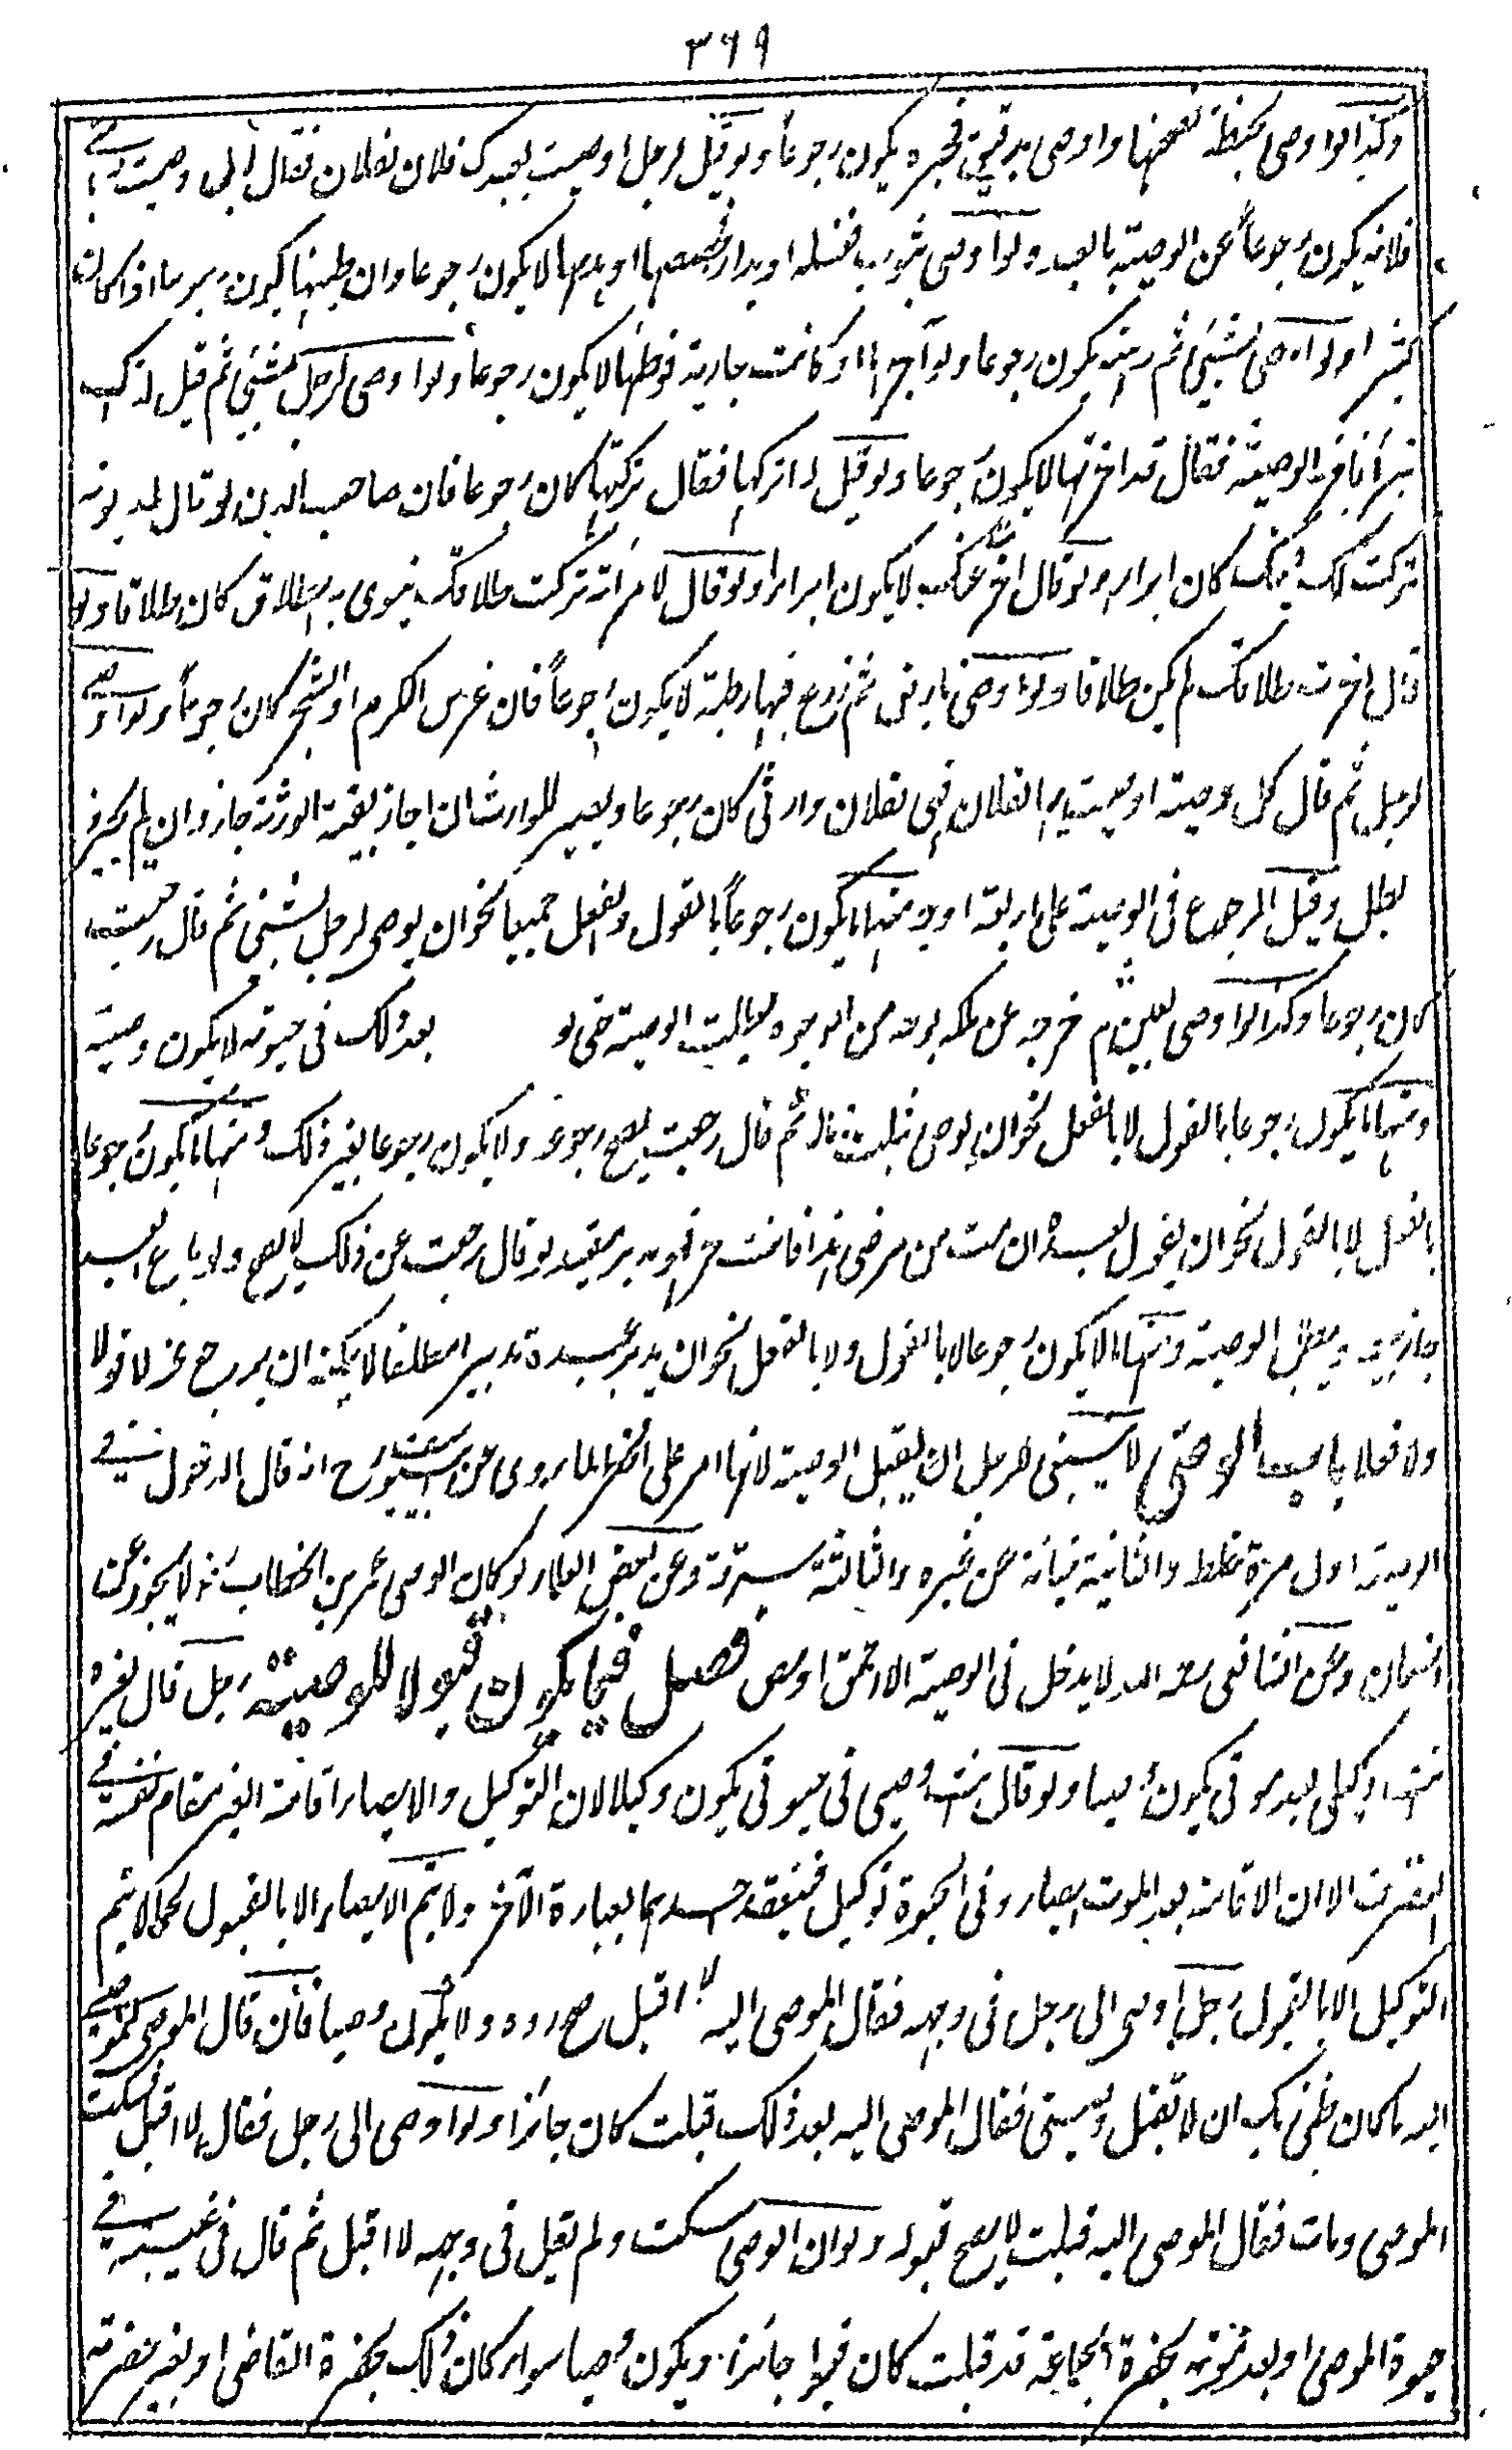 ٣٦٩
وكذا لو اوصى بحنطة فطحنها واوصى بدقيق فخبزه يكون رجوعاً ولو قيل لرجل اوصيت بعبدك فلان لفلان فقال لا بل اوصيت
فلانه يكون رجوعاً عن الوصية بالعبد ولو اوصى بثوب فغسله او بدار فجصصها او هدمها لا يكون رجوعا وان طينها يكون رجوعا اذا كان
كثيرا ولو اوصى بشيئ ثم رهنه يكون رجوعا ولو آجرها او كانت جارية فوطئها لا يكون رجوعاً ولو اوصى لرجل بشيئ ثم قيل له انك
تبرأ فاخر الوصية فقال قد اخرتها لا يكون رجوعا ولو قيل له اتركها فقال تركتها كان رجوعا فان صاحب الدين لو قال لمديونه
تركت لك دينك كان ابراء ولو قال اخرت عنك لا يكون ابراء ولو قال لامرأته تركت طلاقك ينوى به الطلاق كان طلاقا ولو
قال اخرت طلاقك لم يكن طلاقا ولو اوصى بارض ثم زرع فيها رطبة لا يكون رجوعاً فان غرس الكرم او الشجر كان رجوعاً ولو اوصى
لرجل ثم قال كل وصية اوصيت بها لفلان فهي لفلان وارثى كان رجوعا ويصير للوارث ان اجاز بقية الورثة جاز وان لم يجيزوا
بطل وقيل الرجوع فى الوصية على اربعة اوجه منها ما يكون رجوعاً بالقول والفعل جميعا نحو ان يوصى لرجل بشيئ ثم قال رجعت
كان رجوعا وكذا لو اوصى بعين ثم خرجه عن ملكه بوجه من الوجوه بطلت الوصية حتى لو بعد ذلك فى حيوته لا يكون وصية
ومنها ما يكون رجوعا بالقول لا بالفعل نحو ان يوصى بثلث ماله ثم قال رجعت يصح رجوعه ولا يكون رجوعا بغير ذلك ومنها ما يكون رجوعا
بالفعل لا بالقول نحو ان يقول لعبده ان مت من مرضى هذا فانت حر فهو مدبر مقيد لو قال رجعت عن ذلك لا يصح ولو باع العبد
جاز بيعه ويبطل الوصية ومنها ما لا يكون رجوعا لا بالقول ولا بالفعل نحو ان يدبر عبده تدبيرا مطلقا لا يمكنه ان يرجع عنه لا قولا
ولا فعلا باب الوصى لا ينبغى للرجل ان يقبل الوصية لانها امر على الخطر لما روى عن ابى يوسف رح انه قال الدخول فى
الوصية اول مرة غلط والثانية خيانة عن غيره والثالثة سرقة وعن بعض العلماء لو كان الوصى عمر بن الخطاب رض لا ينجو عن
الضمان وعن الشافعى رحمه الله لا يدخل فى الوصية الا احمق او لص فصل فيما يكون قبولا للوصية رجل قال لغيره
انت وكيلى بعد موتى يكون وصيا ولو قال انت وصيى فى حيوتى يكون وكيلا لان التوكيل والايصاء اقامة الغير مقام نفسه فى
التصرف الا ان الاقامة بعد الموت ايصاء وفى الحيوة توكيل فينعقد احدهما بعبارة الآخر ولا يتم الايصاء الا بالقبول كما لا يتم
التوكيل الا بالقبول رجل اوصى الى رجل فى وجهه فقال الموصى اليه لا اقبل صح رده ولا يكون وصيا فان قال الموصى للموصى
اليه ما كان ظنى بك ان لا تقبل وصيتى فقال الموصى اليه بعد ذلك قبلت كان جائزا ولو اوصى الى رجل فقال لا اقبل فسكت
الموصى ومات فقال الموصى اليه قبلت لا يصح قبوله ولو ان الوصى سكت ولم يقل فى وجهه لا اقبل ثم قال فى غيبته فى
حيوة الموصى او بعد موته بحضرة الجماعة قد قبلت كان قبوله جائزا ويكون وصيا سواء كان ذلك بحضرة القاضى او بغير حضرته